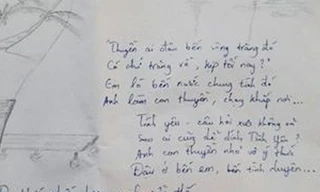 "Thuyền ai đậu bến sông trăng đó
Có chở trăng về, kịp tối nay?"
Em là bến nước chung tình đó
Anh làm con thuyền, chạy khắp nơi...
Tình yêu - câu hỏi xưa không
Sao ai cũng dính Tình Yêu ?
Anh con thuyền nhỏ vô ý thức
Đậu ở bến em, bến tình duyên...